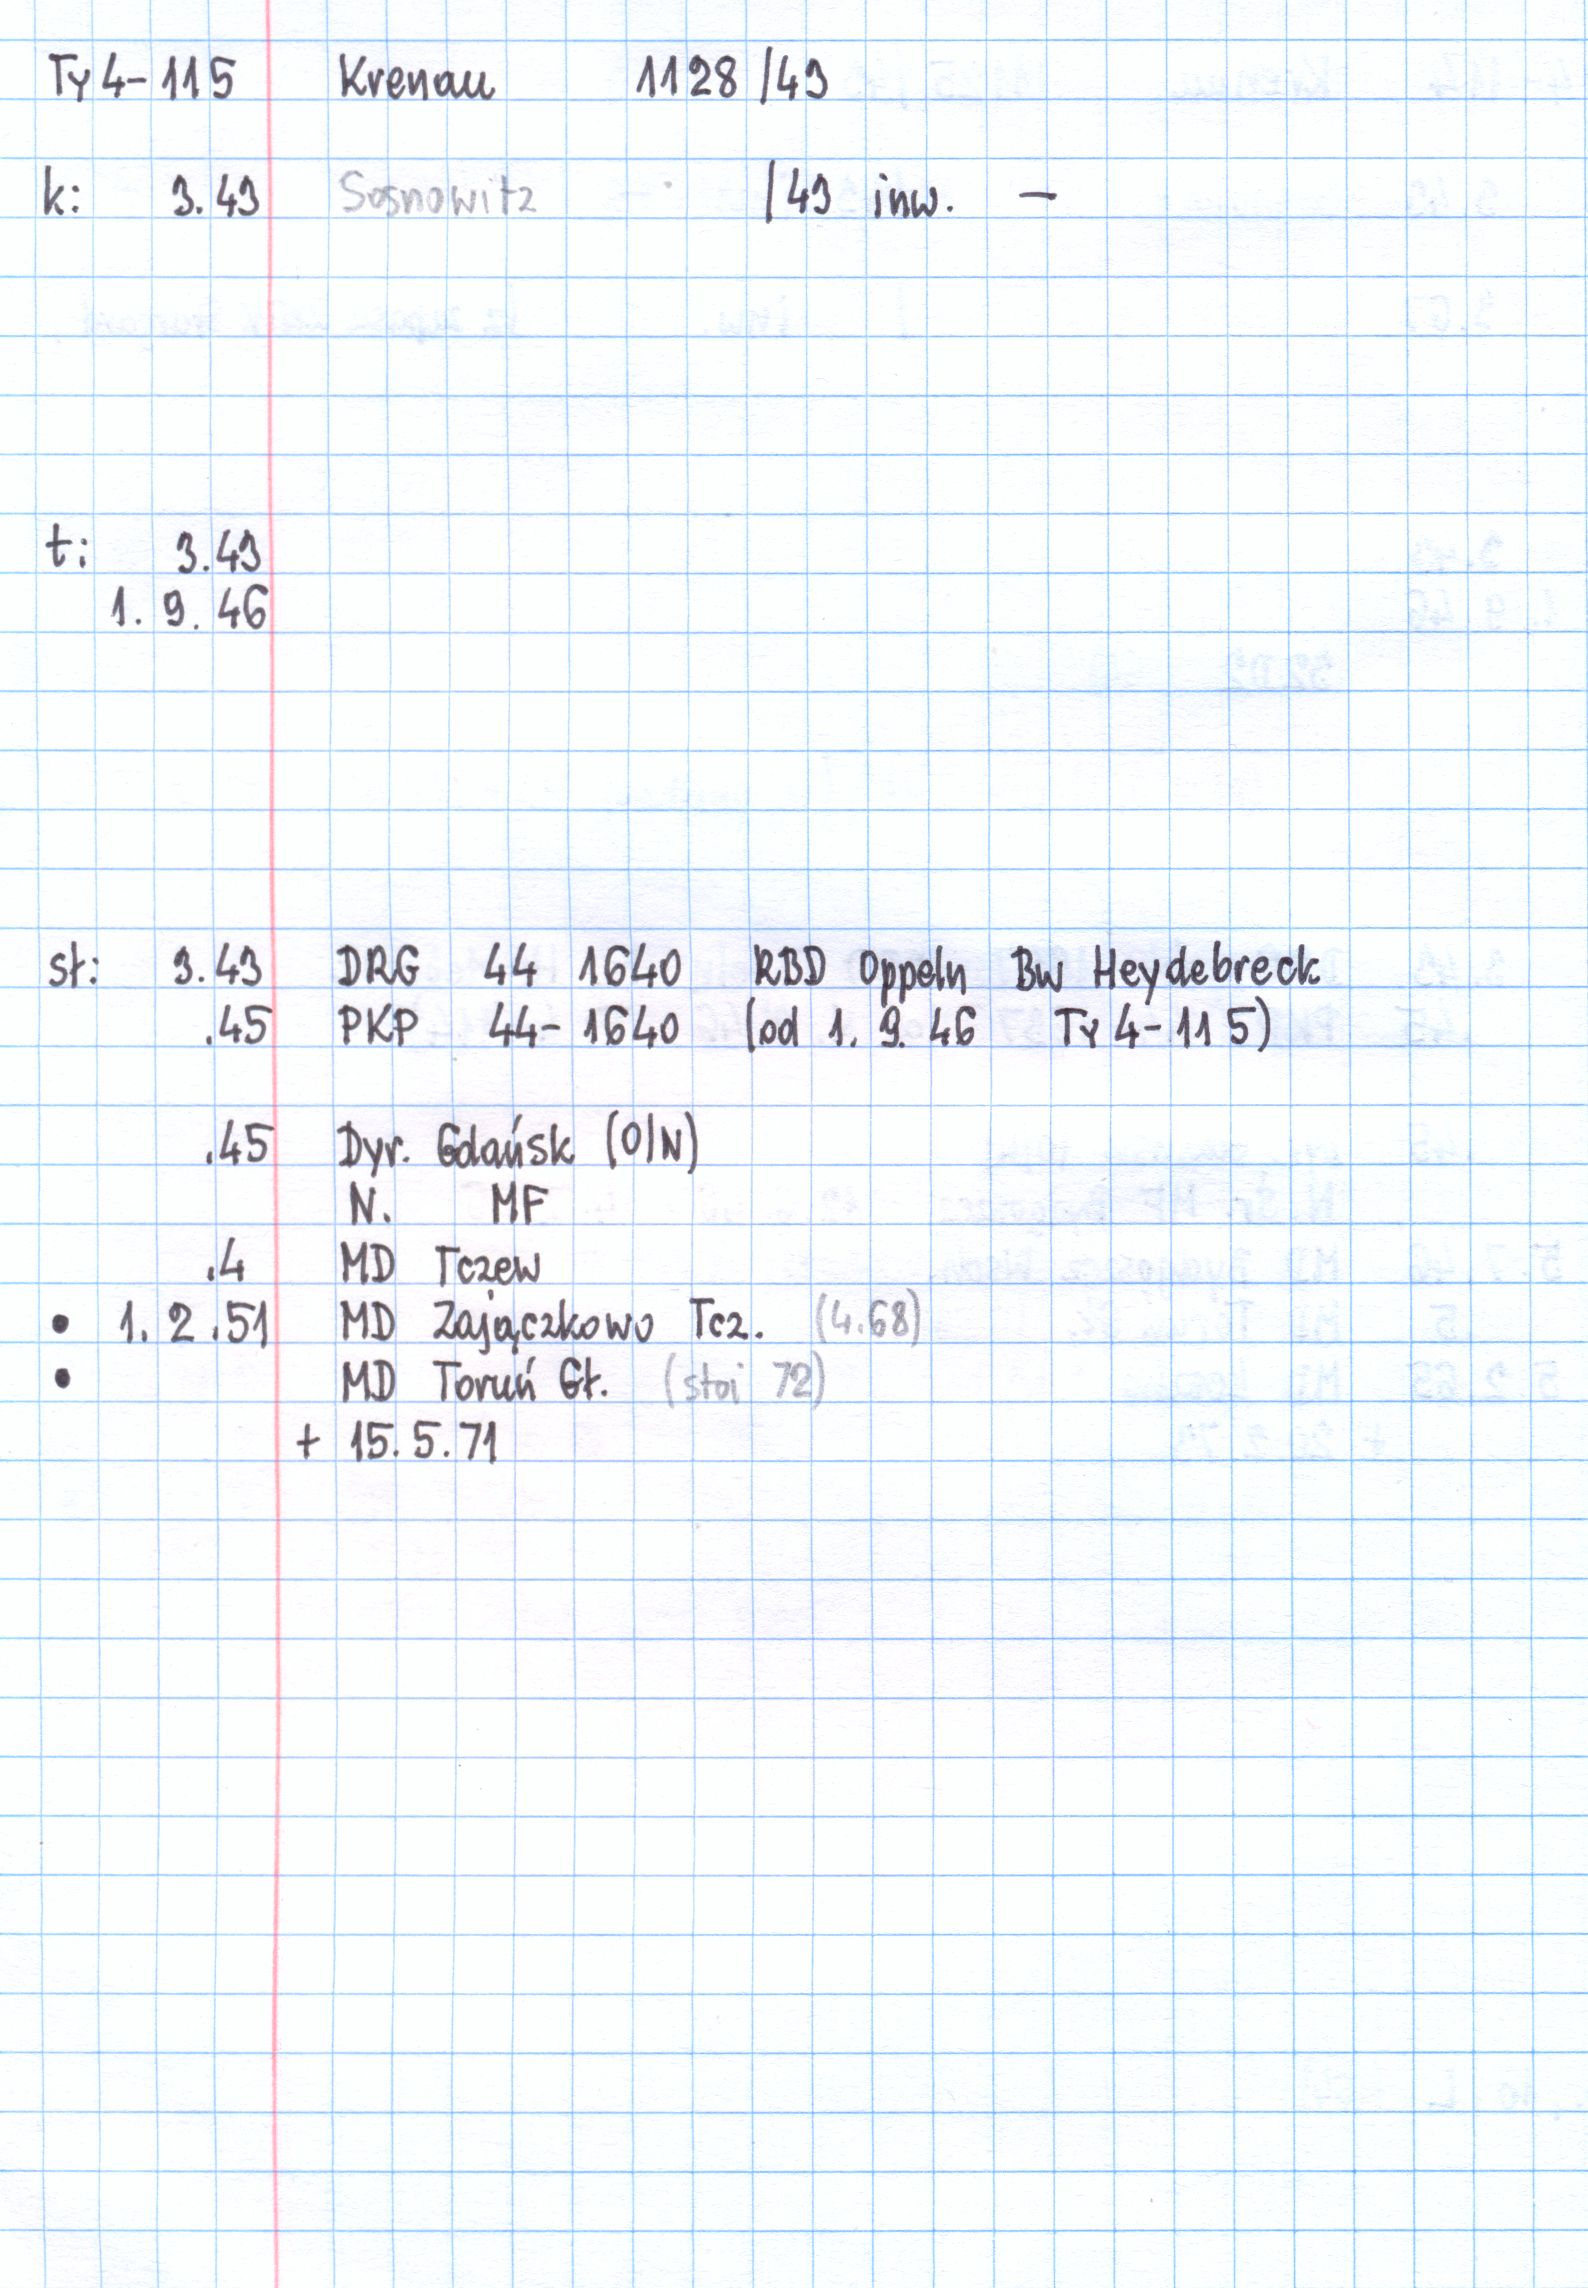 Ty4-115 Krenau 1128/43
k: 3.43 Sosnowitz /43 inw. —
t: 3.43
1. 9. 46
st: 3.43 DRG 44 1640 RBD Oppeln Bw Heydebreck
.45 PKP 44-1640 (od 1. 9. 46 Ty4-115)
.45 Dyr. Gdańsk (O/N)
N. MF
.4 MD Tczew
• 1. 2 .51 MD Zajączkowo Tcz. (4.68)
• MD Toruń Gł. (stoi 72)
+ 15. 5. 71